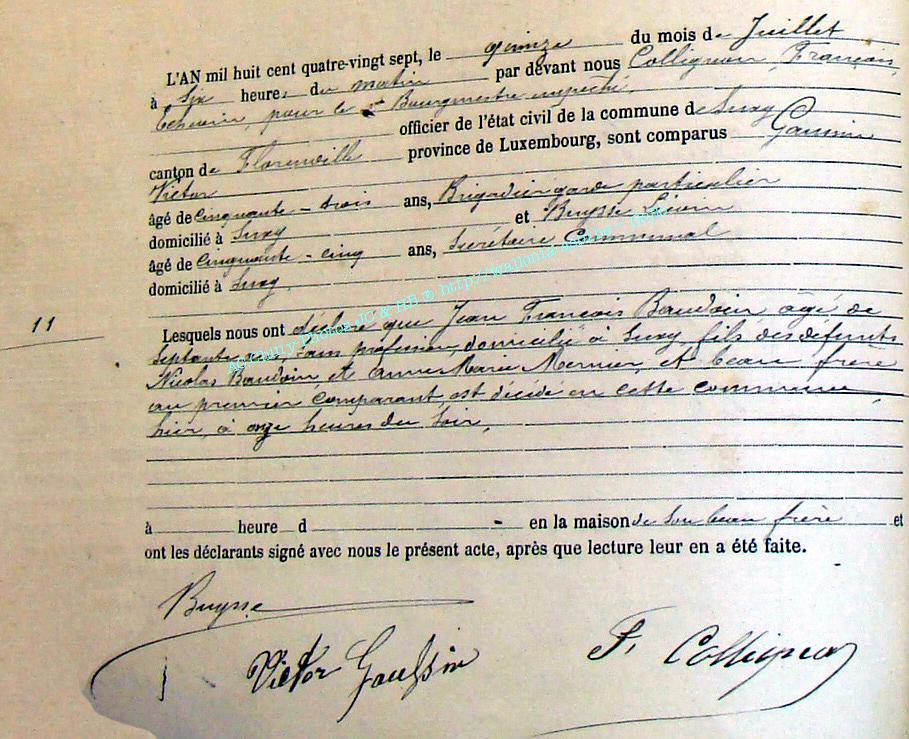 L'AN mil huit cent quatre-vingt sept, le quinze du mois de Juillet
à six heures du matin par devant nous Collignon, François,
Echevin, pour le Bourgmestre empêché,
officier de l'état civil de la commune de Suxy
canton de Florenville province de Luxembourg, sont comparus Gaussin
Victor
âgé de cinquante-trois ans, Brigadier garde particulier
domicilié à Suxy et Buysse Liévin
âgé de cinquante-cinq ans, Secrétaire Communal
domicilié à Suxy.
11
Lesquels nous ont déclaré que Jean François Baudoin âgé de
septante sans profession, domicilié à Suxy, fils des défunts
Nicolas Baudoin, et Anne Marie Mernier, et beau frère
au premier comparant, est décédé en cette commune,
hier, à onze heures du soir,
à heure d - en la maison de son beau frère et
ont les déclarants signé avec nous le présent acte, après que lecture leur en a été faite.
Buysse
Victor Gaussin F. Collignon
JC & HB © http://wallonia